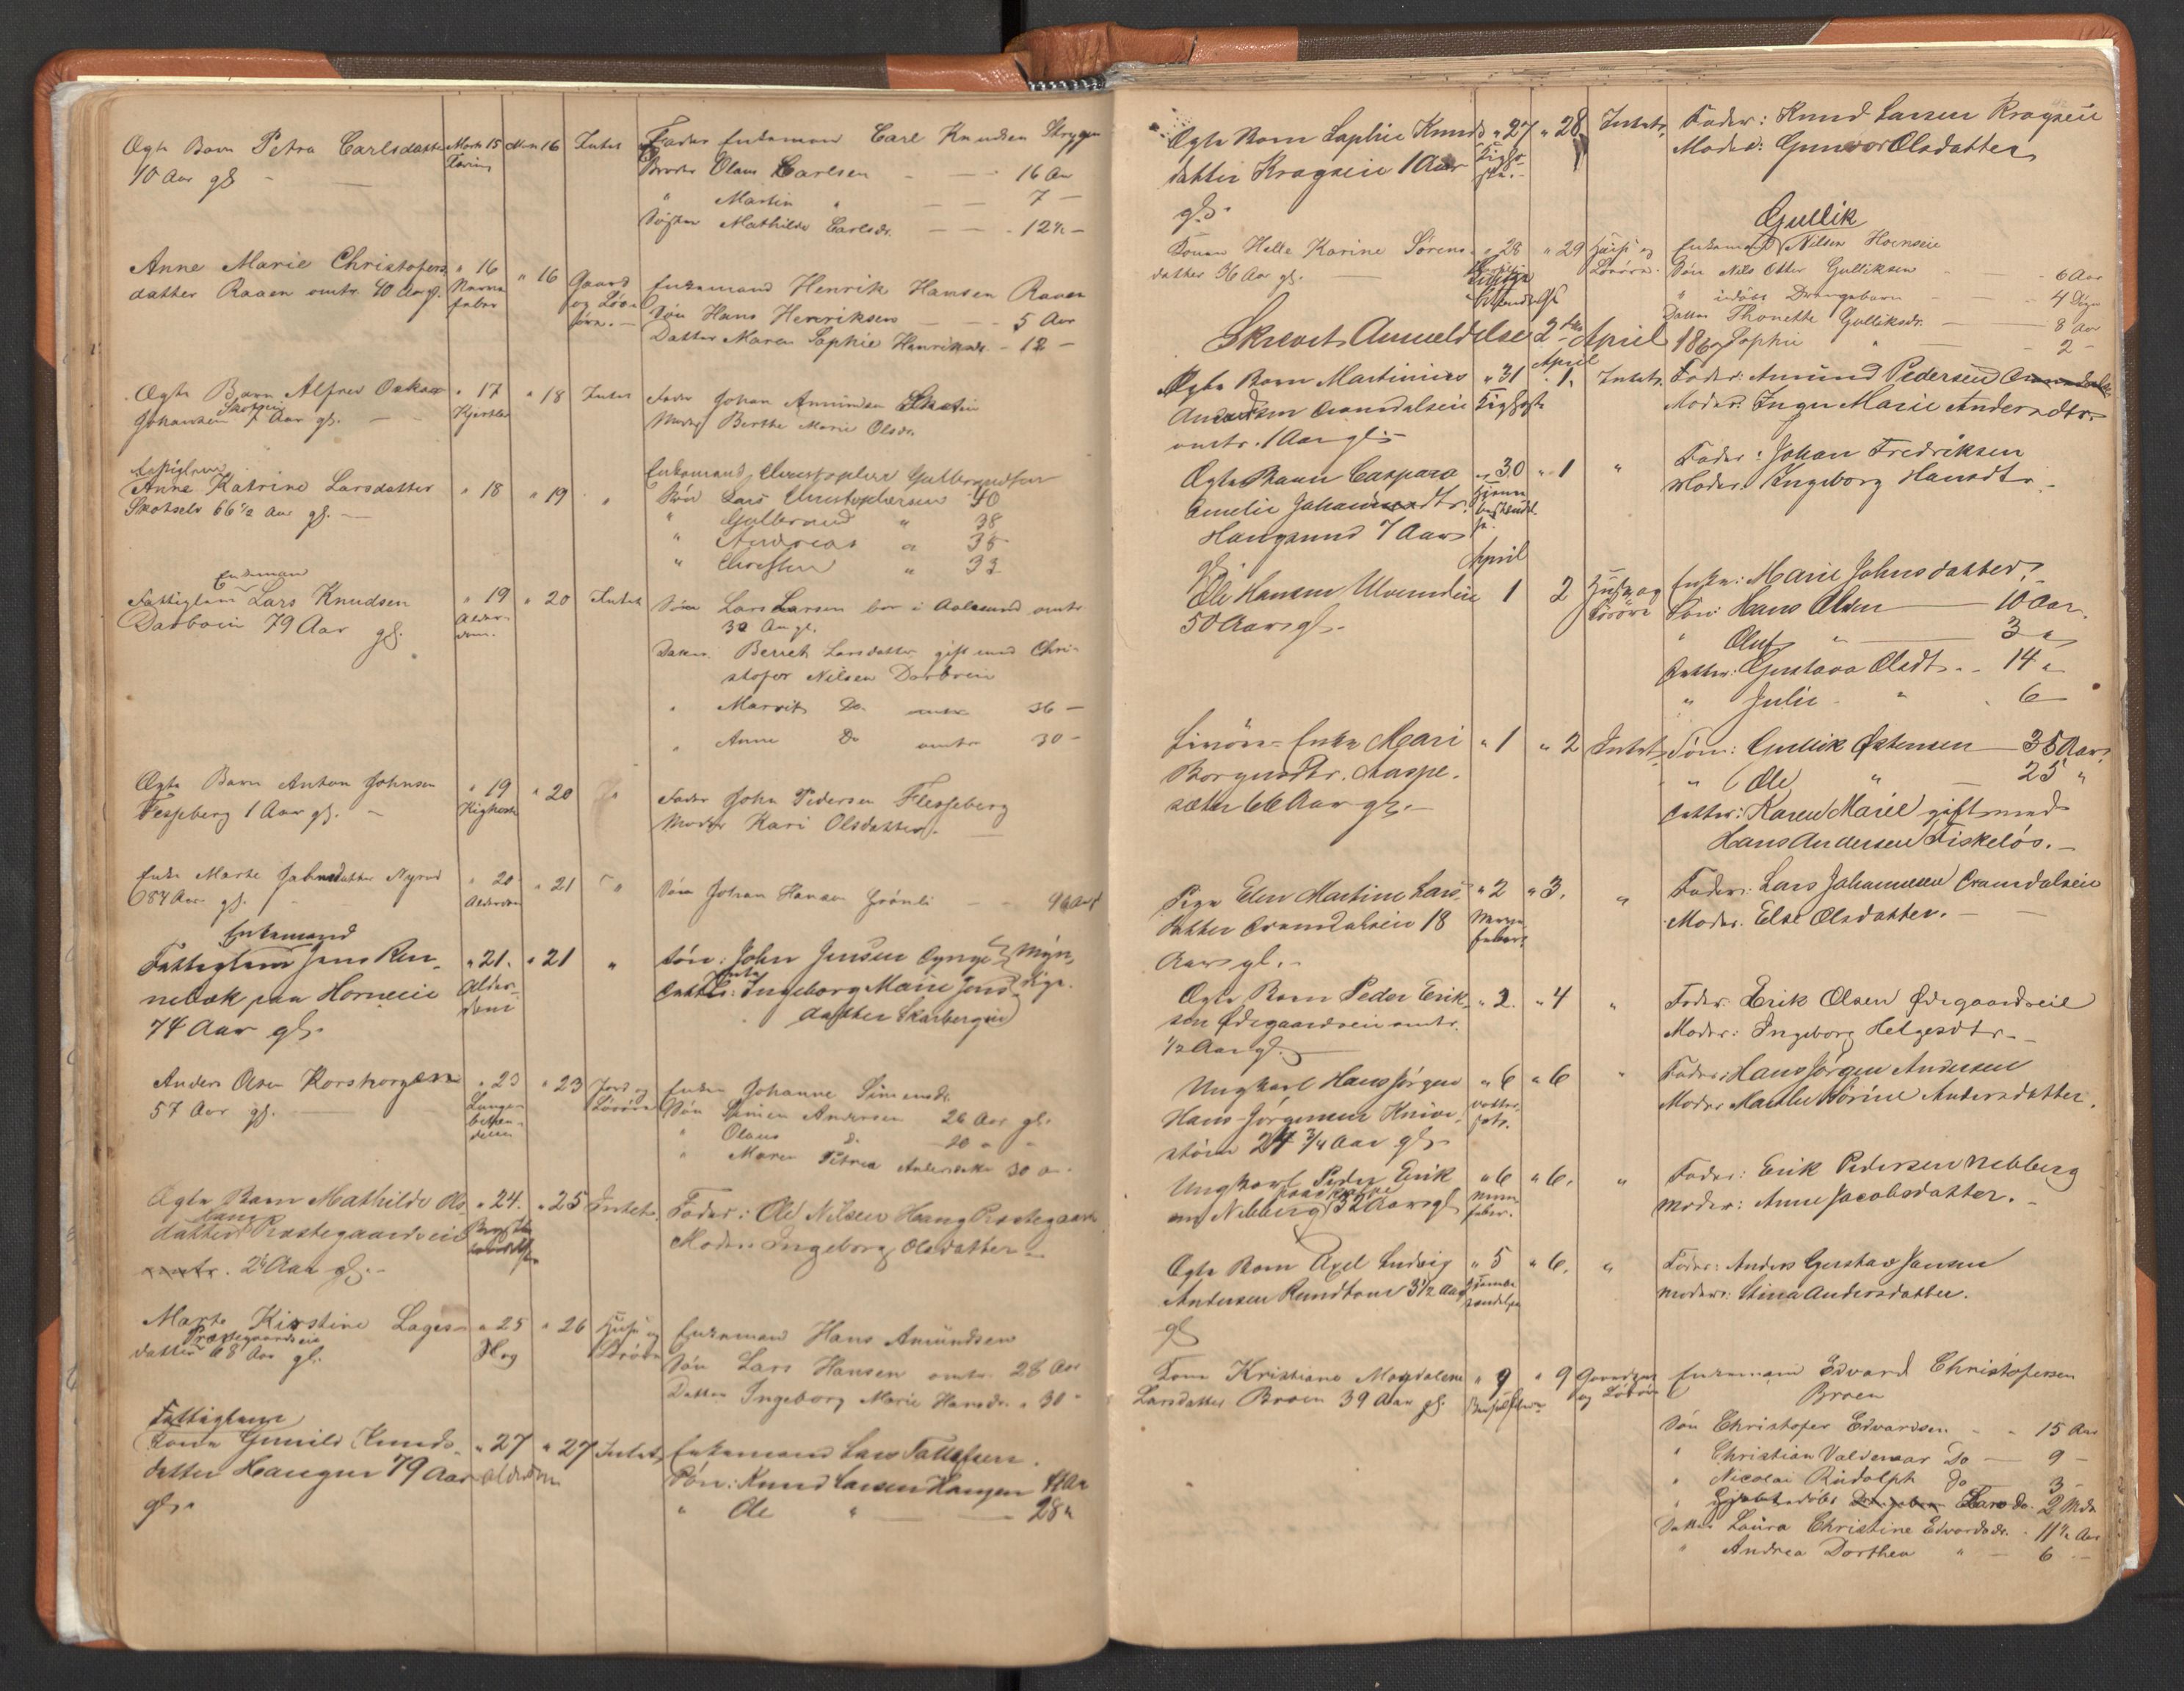 Ægte Barn Petra Carlsdatter Marts 15 Mrs 16 Intet Fader Enkemand Carl Knudsen
10 Aar gl. Broder Olaus Carlsen — 16 Aar
" Martin " — 7 —
Søster Mathilde Carlsdr. — 12½ —
Anne Marie Christofers " 16 " 16 Gaard Enkemand Henrik Hansen Raaen
datter Raaen omtr. 40 Aar gl. Nerve feber og Løs- Søn Hans Henriksen — 5 Aar
øre. — Datter Maren Sophie Henriksdr. — 12 —
Ægte Barn Alfred Oskar " 17 " 18 Intet Fader Johan Amundsen
Johansen Skotsein 7 Aar gl. — Moder Berthe Marie Olsdr.
Fattiglem Enkemand Christopher Gulbrandsen
Anne Katrine Larsdatter " 18 " 19 " Søn Lars Christophersen 40
Skotselv 66½ Aar gl. — " Gulbrand " 38
" Andreas " 35
" Christen " 33
Enkemand
Fattiglem Lars Knudsen " 19 " 20 Intet Søn Lars Larsen bor i Aalesund omtr
Darboein 79 Aar gl. Alderdom. 32 Aar gl.
Datter Berret Larsdatter gift med Chri-
stofer Nilsen Darboein
" Marrit Do. omtr 36 —
" Anne Do omtr 30 —
Ægte Barn Anton Johnsen " 19 " 20 Fader John Pedersen Flesseberg
Fesseberg 1 Aar gl. — Kighoste Moder Kari Olsdatter. —
Enke Marte Jahnsdatter Nyrud " 20 " 21 " Søn Johan Hansen Grønli —
84 Aar gl. Alderdom
Enkemand
Fattiglem Jens Ren- " 21. " 21 " Søn: John Jensen Myn-
nebæk paa Horneeie Alder- Datter: Enke Ingeborg Marie Jens- dige.
74 Aar gl. dom datter Skarbergeie
Anders Olsen Korsborgen " 23 " 23 Jord og Enken Johanne Simensdr.
57 Aar gl. Lunge- Løsøre Søn Simen Andersen 26 Aar gl.
" Olaus " 20 " "
" Maren Petrea Andersdatter 30 "
Ægte Barn Mathilde Ols " 24. " 25 Intet. Fader: Ole Nilsen Haug Præstegaard
datter Haug Præstegaardseie Moder: Ingeborg Olsdatter —
omtr. 2 Aar gl. —
Marte Kirstine Lages- " 25 " 26 Huus og Enkemand Hans Amundsen
datter Præstegaardseie 68 Aar gl. Slag Løsøre Søn Lars Hansen omtr. 28 Aar
Datter Ingeborg Marie Hansdr. " 30 "
Fattiglem
Kone Gunild Knuds- " 27 " 27 Intet Enkemand Lars Tollefsen.
datter Haugen 79 Aar Alderdom Søn: Knud Larsen Haugen
gl. " Ole " — 28 "
Ægte Barn Sophie Knuds " 27 " 28 Intet. Fader: Knud Larsen Kragseie
datter Kragseie 1 Aar Kigho- ste. Moder: Gunvor Olsdatter
gl.
Gullik
Konen Helle Karine Sørens- " 28 " 29 Huus og Enkemand Nilsen Hoenseie
datter 36 Aar gl. — Løsøre. Søn Nils Otter Gulliksen — 6 Aar
" udøbt Drengebarn — 4 Dage
Datter Thonette Gulliksdr. — 8 Aar
Skrevet Anmeldelse 2den April 18 " Sophie " — 2 —
Ægte Barn Martinius " 31 April 1. Intet. Fader: Amund Pedersen
Amundsen Cramdalseie Kighoste Moder: Inger Marie Andersdtr.
omtr. 1 Aar gl. —
Ægte Barn Caspara " 30 " 1 " Fader: Johan Fredriksen
Amelie Johansdtr. Moder: Ingeborg Hansdtr. —
Haugsund 7 Aar
gl.
April
Ole Hansen Ulverudeie 1 2 Huus og Enke: Marie Johnsdatter.
50 Aar gl. Løsøre Søn: Hans Olsen — 10 Aar.
" Oluf " — 3 "
Datter: Gustava Olsdtr. — 14 "
" Julie " — 6 —
Enke Mari " 1 " 2 Intet Søn: Gullik Østensen — 35 Aar
Borgersdtr. Aaspe- " Ole " — 25 "
sæter 66 Aar gl. — Datter: Karen Marie gift med
Hans Andersen Fiskeløs. —
Pige Elen Martine Lars- " 2 " 3. " Fader: Lars Johannesen Cramdalseie
datter Cramdalseie 18 Nerve feber Moder: Else Olsdatter. —
Aar gl. —
Ægte Barn Peder Erik- " 2. " 4 " Fader: Erik Olsen Ødegaardseie
sen Ødegaardseie omtr. Moder: Ingeborg Helgesdtr. —
½ Aar gl.
Ungkarl Hans Jørgen " 6 " 6 " Fader: Hans Jørgen Andersen
Hans Jørgensen Knive- Vatter- sot. Moder Marthe Sørine Andersdatter.
støen 24 ¾ Aar gl.
Ungkarl Peder Erik " 6 " 6. " Fader: Erik Pedersen Nebberg
sen Nebberg 32 Aar gl. Nerve- feber. Moder: Anne Jacobsdatter. —
Ægte Barn Axel Ludvig " 5 " 6. " Fader: Anders Gustav Jansen
Andersen Rundtom 3½ Aar Moder: Stina Andersdatter.
gl
Kone Kristiane Magdalene " 9 " 9 Gaardpart Enkemand Edvard Christofersen
Larsdatter Broen 39 Aar gl. og Løsøre Broen
Søn Christofer Edvardsen — 15 Aar
" Christian Valdemar Do — 9 —
" Nicolai Rudolph Do 3 —
" Lars do. 2 Mdr
Datter Laura Christine Edvardsdr. " 11½ Aar
" Andrea Dorthea " — 6 —